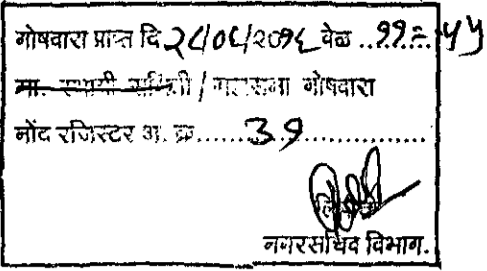 गोषवारा प्राप्त दि २८/०८/२०१८ वेळ ..११=५५
मा. स्थायी समिती / पालसभा गोषवारा
नोंद रजिस्टर अ. क्र......३१
नगरसचिव विभाग.